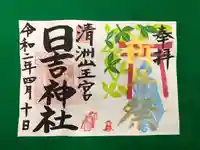 奉拝
祭
清洲山王宮
日吉神社
令和二年四月十日